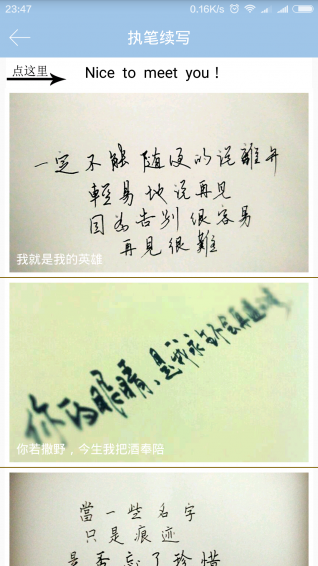 23:47
0.16K/s
执笔续写
点这里
Nice to meet you！
一定不能随便的说離开
輕易地说再见
因为告别很容易
再見很難
我就是我的英雄
你的眼睛,是我永
你若撒野，今生我把酒奉陪
當一些名字
只是痕迹
是否忘了珍惜